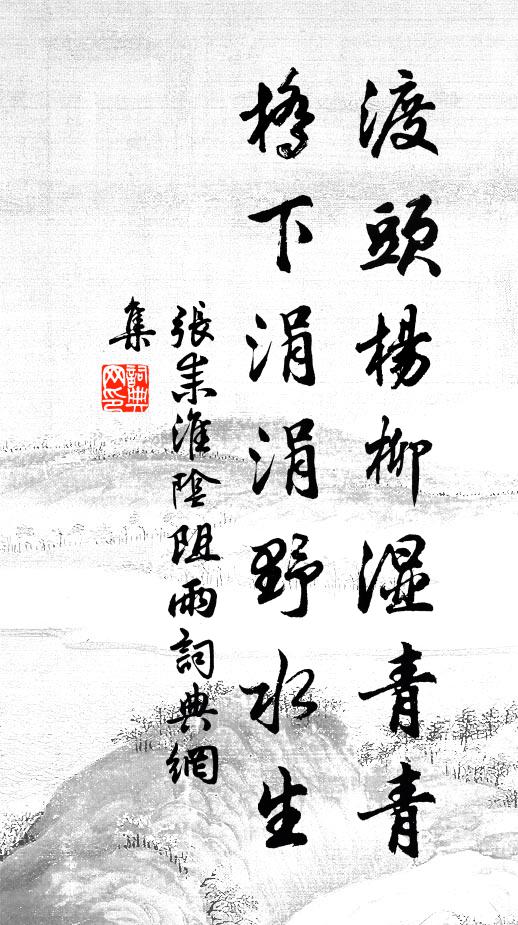 渡頭楊柳濕青青
橋下涓涓野水生
張耒淮陰阻雨詞典網
集
詞典
网印